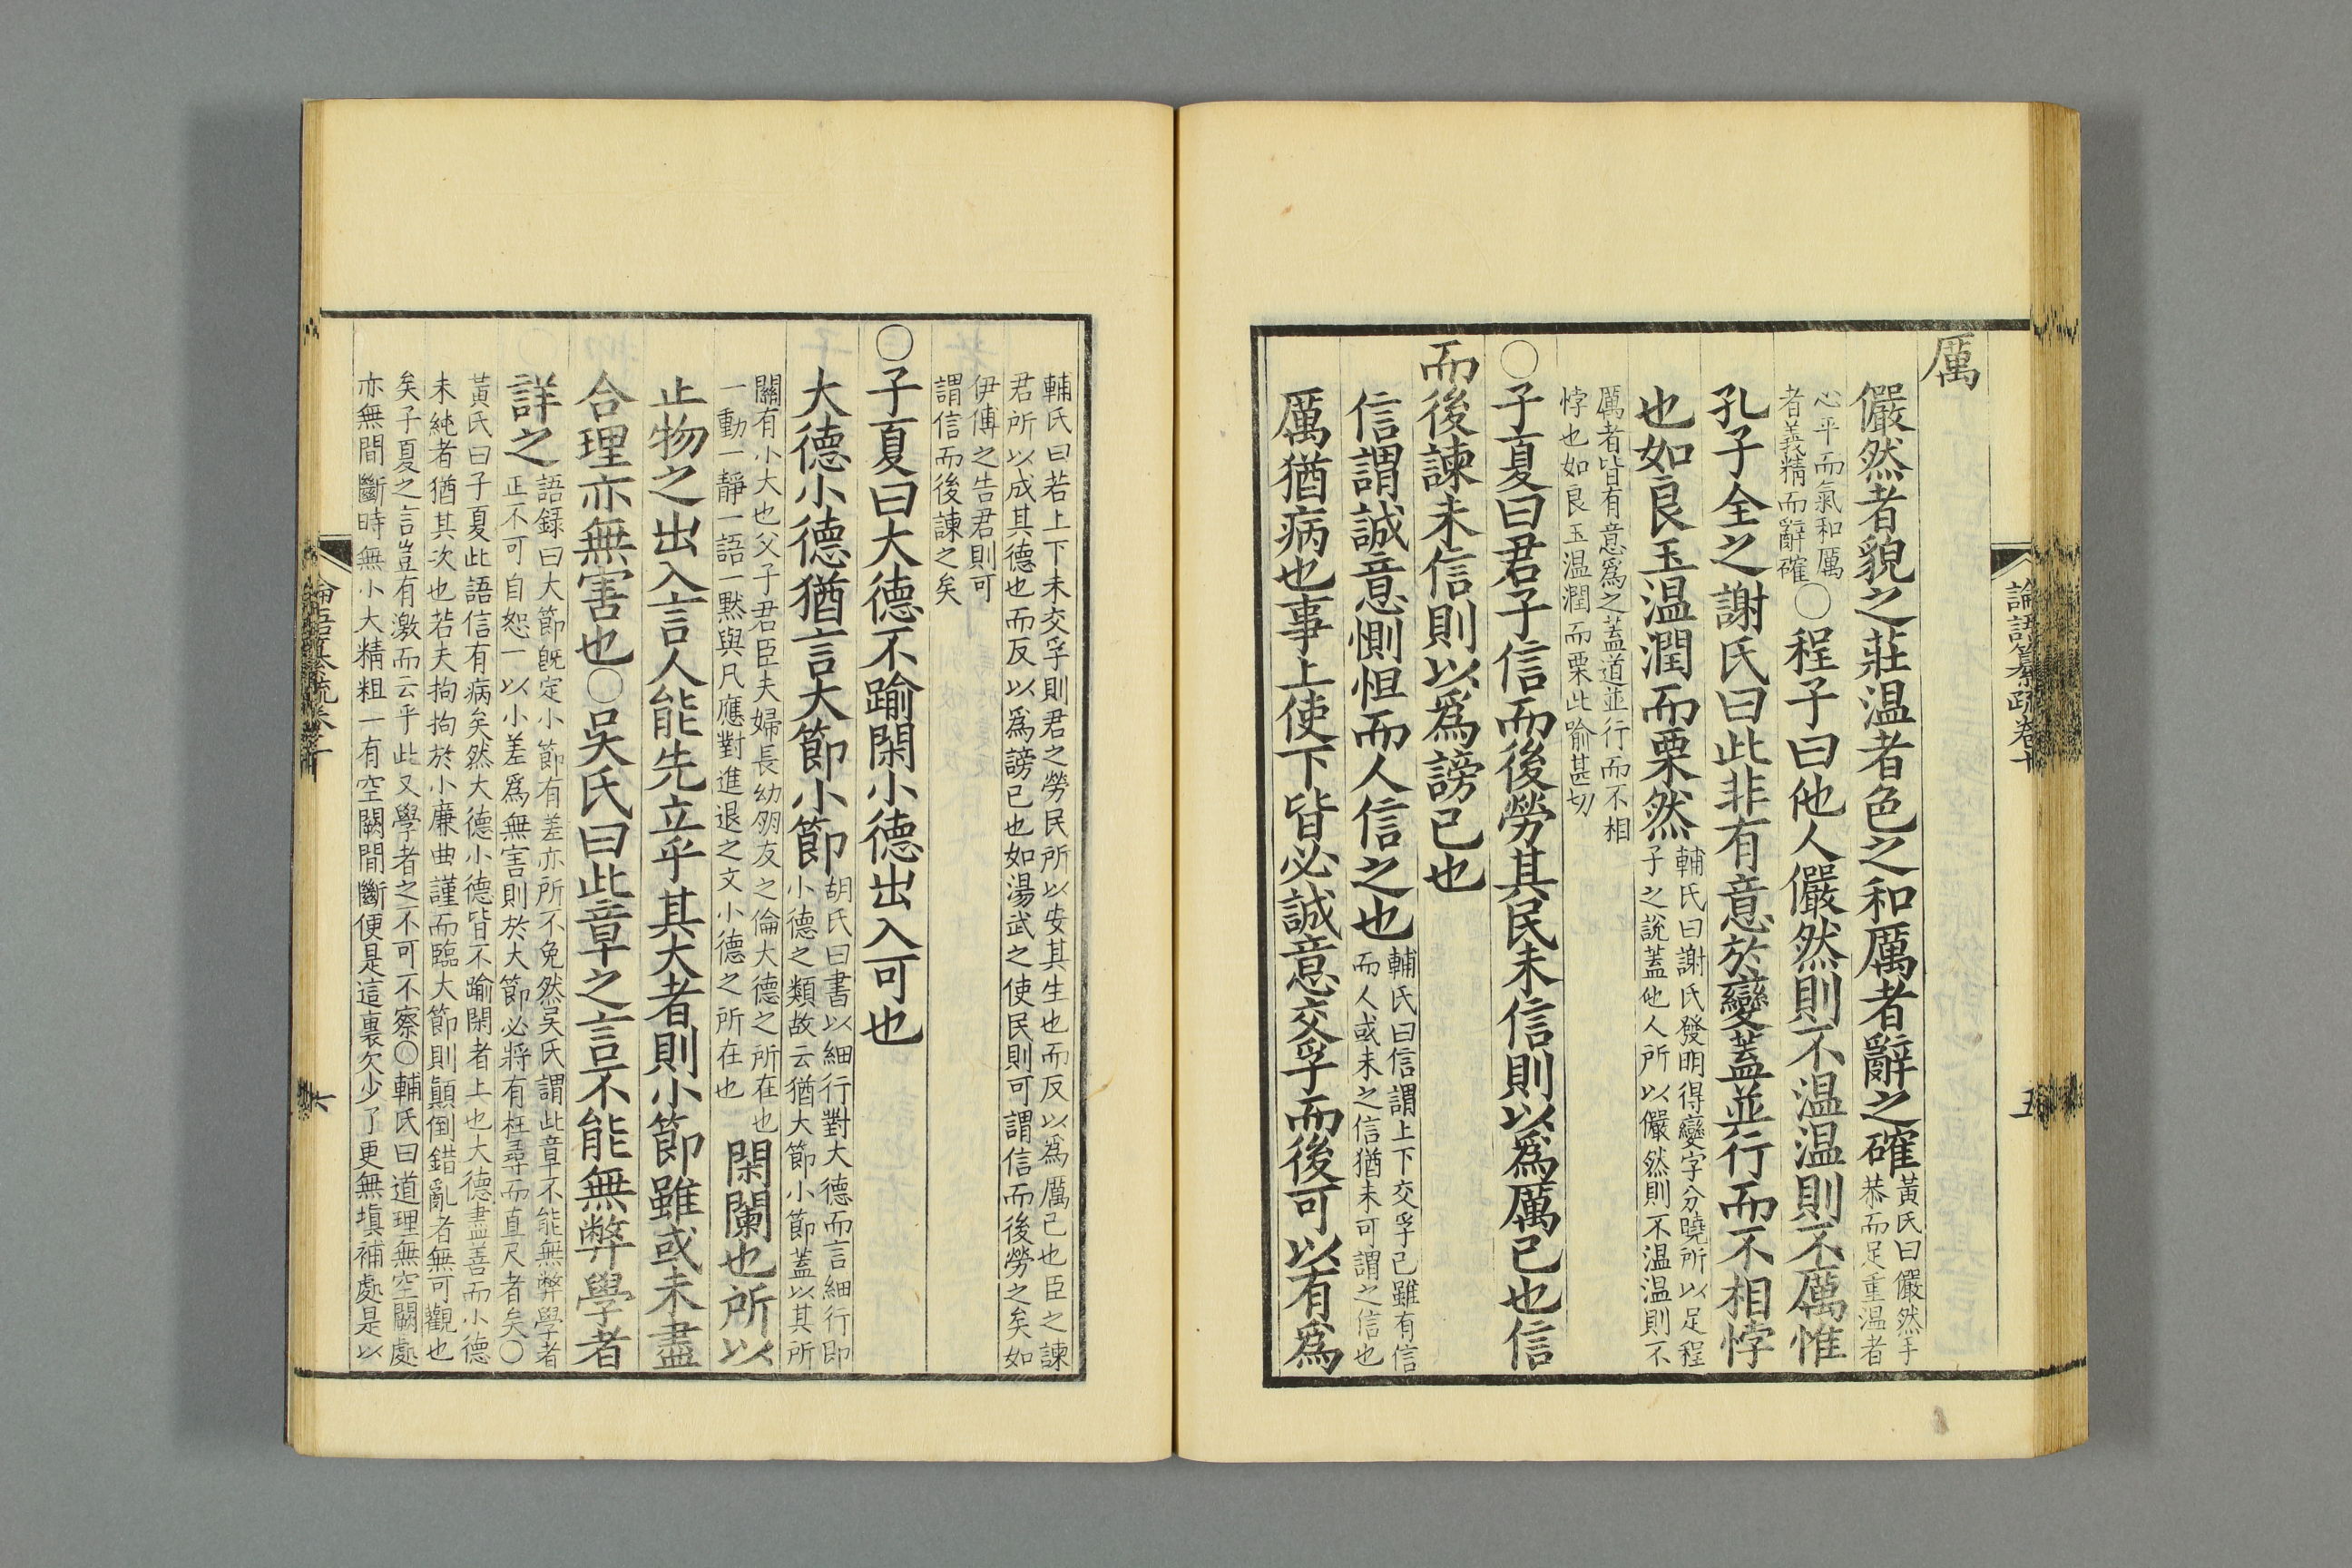 論語纂疏卷十
五
厲
儼然者貌之莊温者色之和厲者辭之確黃氏曰儼然手
恭而足重温者
心平而氣和厲
者義精而辭確〇程子曰他人儼然則不温温則不厲惟
孔子全之謝氏曰此非有意於變蓋並行而不相悖
也如良玉温潤而栗然輔氏曰謝氏發明得變字分曉所以足程
子之説蓋他人所以儼然則不温温則不
厲者皆有意爲之蓋道並行而不相
悖也如良玉温潤而栗此喻甚切
〇子夏曰君子信而後勞其民未信則以爲厲己也信
而後諫未信則以爲謗己也
信謂誠意惻怛而人信之也輔氏曰信謂上下交孚己雖有信
而人或未之信猶未可謂之信也
厲猶病也事上使下皆必誠意交孚而後可以有爲
輔氏曰若上下未交孚則君之勞民所以安其生也而反以爲厲己也臣之諫
君所以成其德也而反以爲謗己也如湯武之使民則可謂信而後勞之矣如
伊傅之告君則可
謂信而後諫之矣
〇子夏曰大德不踰閑小德出入可也
大德小德猶言大節小節胡氏曰書以細行對大德而言細行即
小德之類故云猶大節小節蓋以其所
關有小大也父子君臣夫婦長幼朋友之倫大德之所在也
一動一靜一語一默與凡應對進退之文小德之所在也閑闌也所以
止物之出入言人能先立乎其大者則小節雖或未盡
合理亦無害也〇吳氏曰此章之言不能無弊學者
詳之語録曰大節既定小節有差亦所不免然吳氏謂此章不能無弊學者
正不可自恕一以小差爲無害則於大節必將有枉尋而直尺者矣〇
黃氏曰子夏此語信有病矣然大德小德皆不踰閑者上也大德盡善而小德
未純者猶其次也若夫拘拘於小廉曲謹而臨大節則顛倒錯亂者無可觀也
矣子夏之言豈有激而云乎此又學者之不可不察〇輔氏曰道理無空闕處
亦無間斷時無小大精粗一有空闕間斷便是這裏欠少了更無塡補處是以
論語纂疏卷十
六